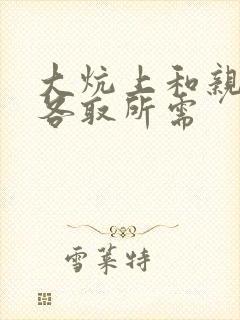 大炕上和親
各取所需
雪莱特